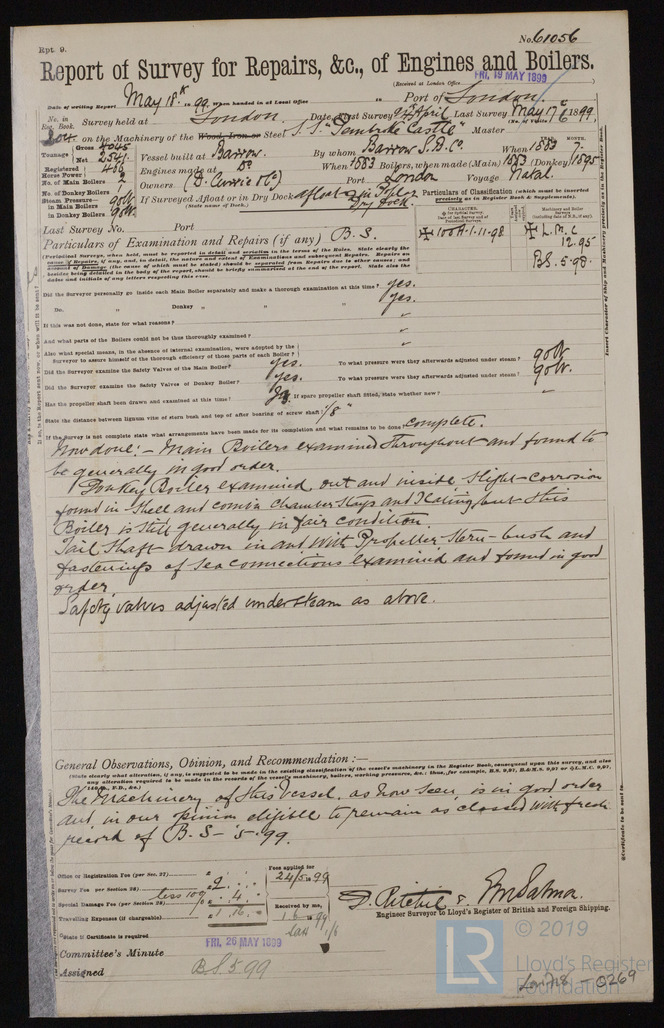 Rpt. 9.
No. 61056
Report of Survey for Repairs, &c., of Engines and Boilers.
(Received at London Office
FRI. 19 MAY 1899
Date of writing Report May 18th 1899 When handed in at Local Office " Port of London.
No. in Reg. Book.
Survey held at London. Date, First Survey April Last Survey May 17th 1899
on the Machinery of the Wood, Iron or Steel S.S. "Pembroke Castle" Master
Tonnage Gross 4045
Net 2541
Vessel built at Barrow. By whom Barrow S.B. Co. When 1883 7.
Registered Horse Power 466
Engines made at Do When 1883 Boilers, when made (Main) 1883 (Donkey) 1895
No. of Main Boilers
Owners (D. Currie & Co.) Port London Voyage Natal.
No. of Donkey Boilers
Steam Pressure—
in Main Boilers 90 lb.
in Donkey Boilers 90 lb.
If Surveyed Afloat or in Dry Dock afloat & in Dry Dock.
(State name of Dock.)
Particulars of Classification (which must be inserted precisely as in Register Book & Supplements).
Last Survey No. Port
CHARACTER.
Machinery and Boiler Surveys
100A1. 11.98
L.M.C.
12.95
B.S. 5.98.
Particulars of Examination and Repairs (if any) B.S.
(Periodical Surveys, when held, must be reported in detail and seriatim in the terms of the Rules. State clearly the
Did the Surveyor personally go inside each Main Boiler separately and make a thorough examination at this time? Yes.
Do. " Donkey " " " " Yes.
If this was not done, state for what reasons? "
And what parts of the Boilers could not be thus thoroughly examined? "
Also what special means, in the absence of internal examination, were adopted by the Surveyor to assure himself of the thorough efficiency of those parts of each Boiler? "
Did the Surveyor examine the Safety Valves of the Main Boiler? Yes. To what pressure were they afterwards adjusted under steam? 90 lb.
Did the Surveyor examine the Safety Valves of Donkey Boiler? Yes. To what pressure were they afterwards adjusted under steam? 90 lb.
Has the propeller shaft been drawn and examined at this time? Yes If spare propeller shaft fitted, State whether new? "
State the distance between lignum vitæ of stern bush and top of after bearing of screw shaft: 1/8"
If the Survey is not complete state what arrangements have been made for its completion and what remains to be done complete.
Now done:— Main Boilers examined throughout and found to
be generally in good order.
Donkey Boiler examined out and inside slight corrosion
found in shell and combn chamber stays and plating, but this
Boiler is still generally in fair condition.
Tail Shaft drawn in and with Propeller Stern-bush and
fastenings of sea connections examined and found in good
order.
Safety valves adjusted under steam as above.
General Observations, Opinion, and Recommendation:—
(State clearly what alteration, if any, is suggested to be made in the existing classification of the vessel's machinery in the Register Book, consequent upon this survey, and also
any alteration required to be made in the records of the vessel's machinery, boilers, working pressures, &c.: thus, for example, B.S. 9,97, B.&M.S. 9,97 or L.M.C. 9,97,
The Machinery of this Vessel, as now seen, is in good order
and in our opinion eligible to remain as classed with fresh
record of B.S - 5.99.
Office or Registration Fee (per Sec. 27)
Fees applied for
24/5/1899
Survey Fee (per Section 28) 2
less 10%
Special Damage Fee (per Section 28) 4
Received by me,
Travelling Expenses (if chargeable) 1.16
D. Ritchie &
Engineer Surveyor to Lloyd's Register of British and Foreign Shipping.
State if Certificate is required
Committee's Minute FRI. 26 MAY 1899
Assigned BS 5 99
© 2019
LR
Lloyd's Register
Foundation
0269